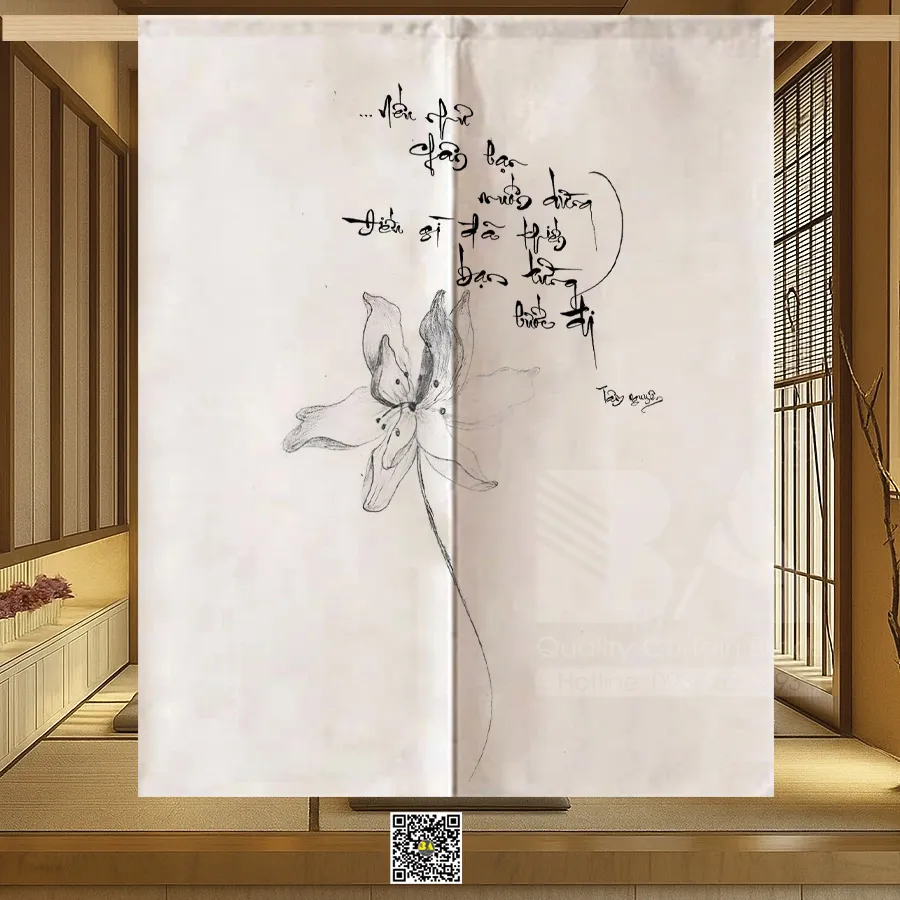 ...Nếu như
chân bạn
muốn dừng
Điều gì đã khiến
bạn từng
bước đi
BA
Quality Curtain
Hotline
BA